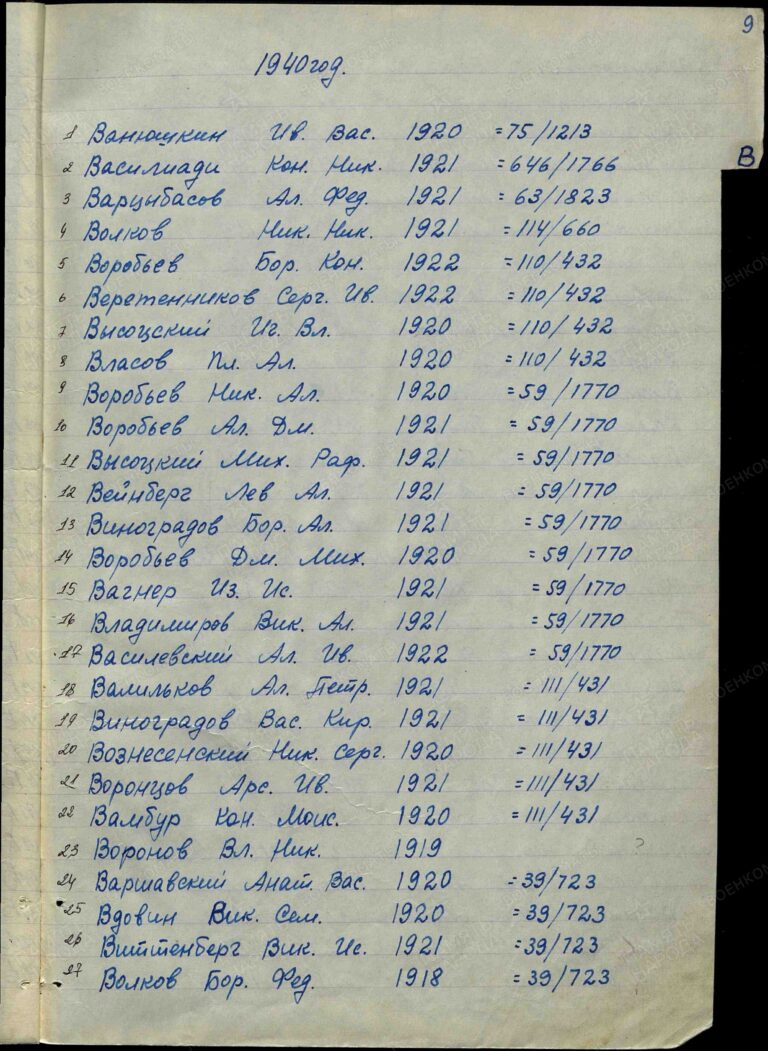 9
1940 год.
В
1 Ванюшкин Ив. Вас. 1920 = 75/1213
2 Василиади Кон. Ник. 1921 = 646/1766
3 Варцыбасов Ал. Фед. 1921 = 63/1823
4 Волков Ник. Ник. 1921 = 114/660
5 Воробьев Бор. Кон. 1922 = 110/432
6 Веретенников Серг. Ив. 1922 = 110/432
7 Высоцский Иг. Вл. 1920 = 110/432
8 Власов Пл. Ал. 1920 = 110/432
9 Воробьев Ник. Ал. 1920 = 59/1770
10 Воробьев Ал. Дм. 1921 = 59/1770
11 Высоцкий Мих. Раф. 1921 = 59/1770
12 Вейнберг Лев Ал. 1921 = 59/1770
13 Виноградов Бор. Ал. 1921 = 59/1770
14 Воробьев Дм. Мих. 1920 = 59/1770
15 Вагнер Из. Ис. 1921 = 59/1770
16 Владимиров Вик. Ал. 1921 = 59/1770
17 Василевский Ал. Ив. 1922 = 59/1770
18 Валильков Ал. Петр. 1921 = 111/431
19 Виноградов Вас. Кир. 1921 = 111/431
20 Вознесенский Ник. Серг. 1920 = 111/431
21 Воронцов Арс. Ив. 1921 = 111/431
22 Вамбур Кон. Моис. 1920 = 111/431
23 Воронов Вл. Ник. 1919 ?
24 Варшавский Анат. Вас. 1920 = 39/723
25 Вдовин Вик. Сем. 1920 = 39/723
26 Виттенберг Вик. Ис. 1921 = 39/723
27 Волков Бор. Фед. 1918 = 39/723